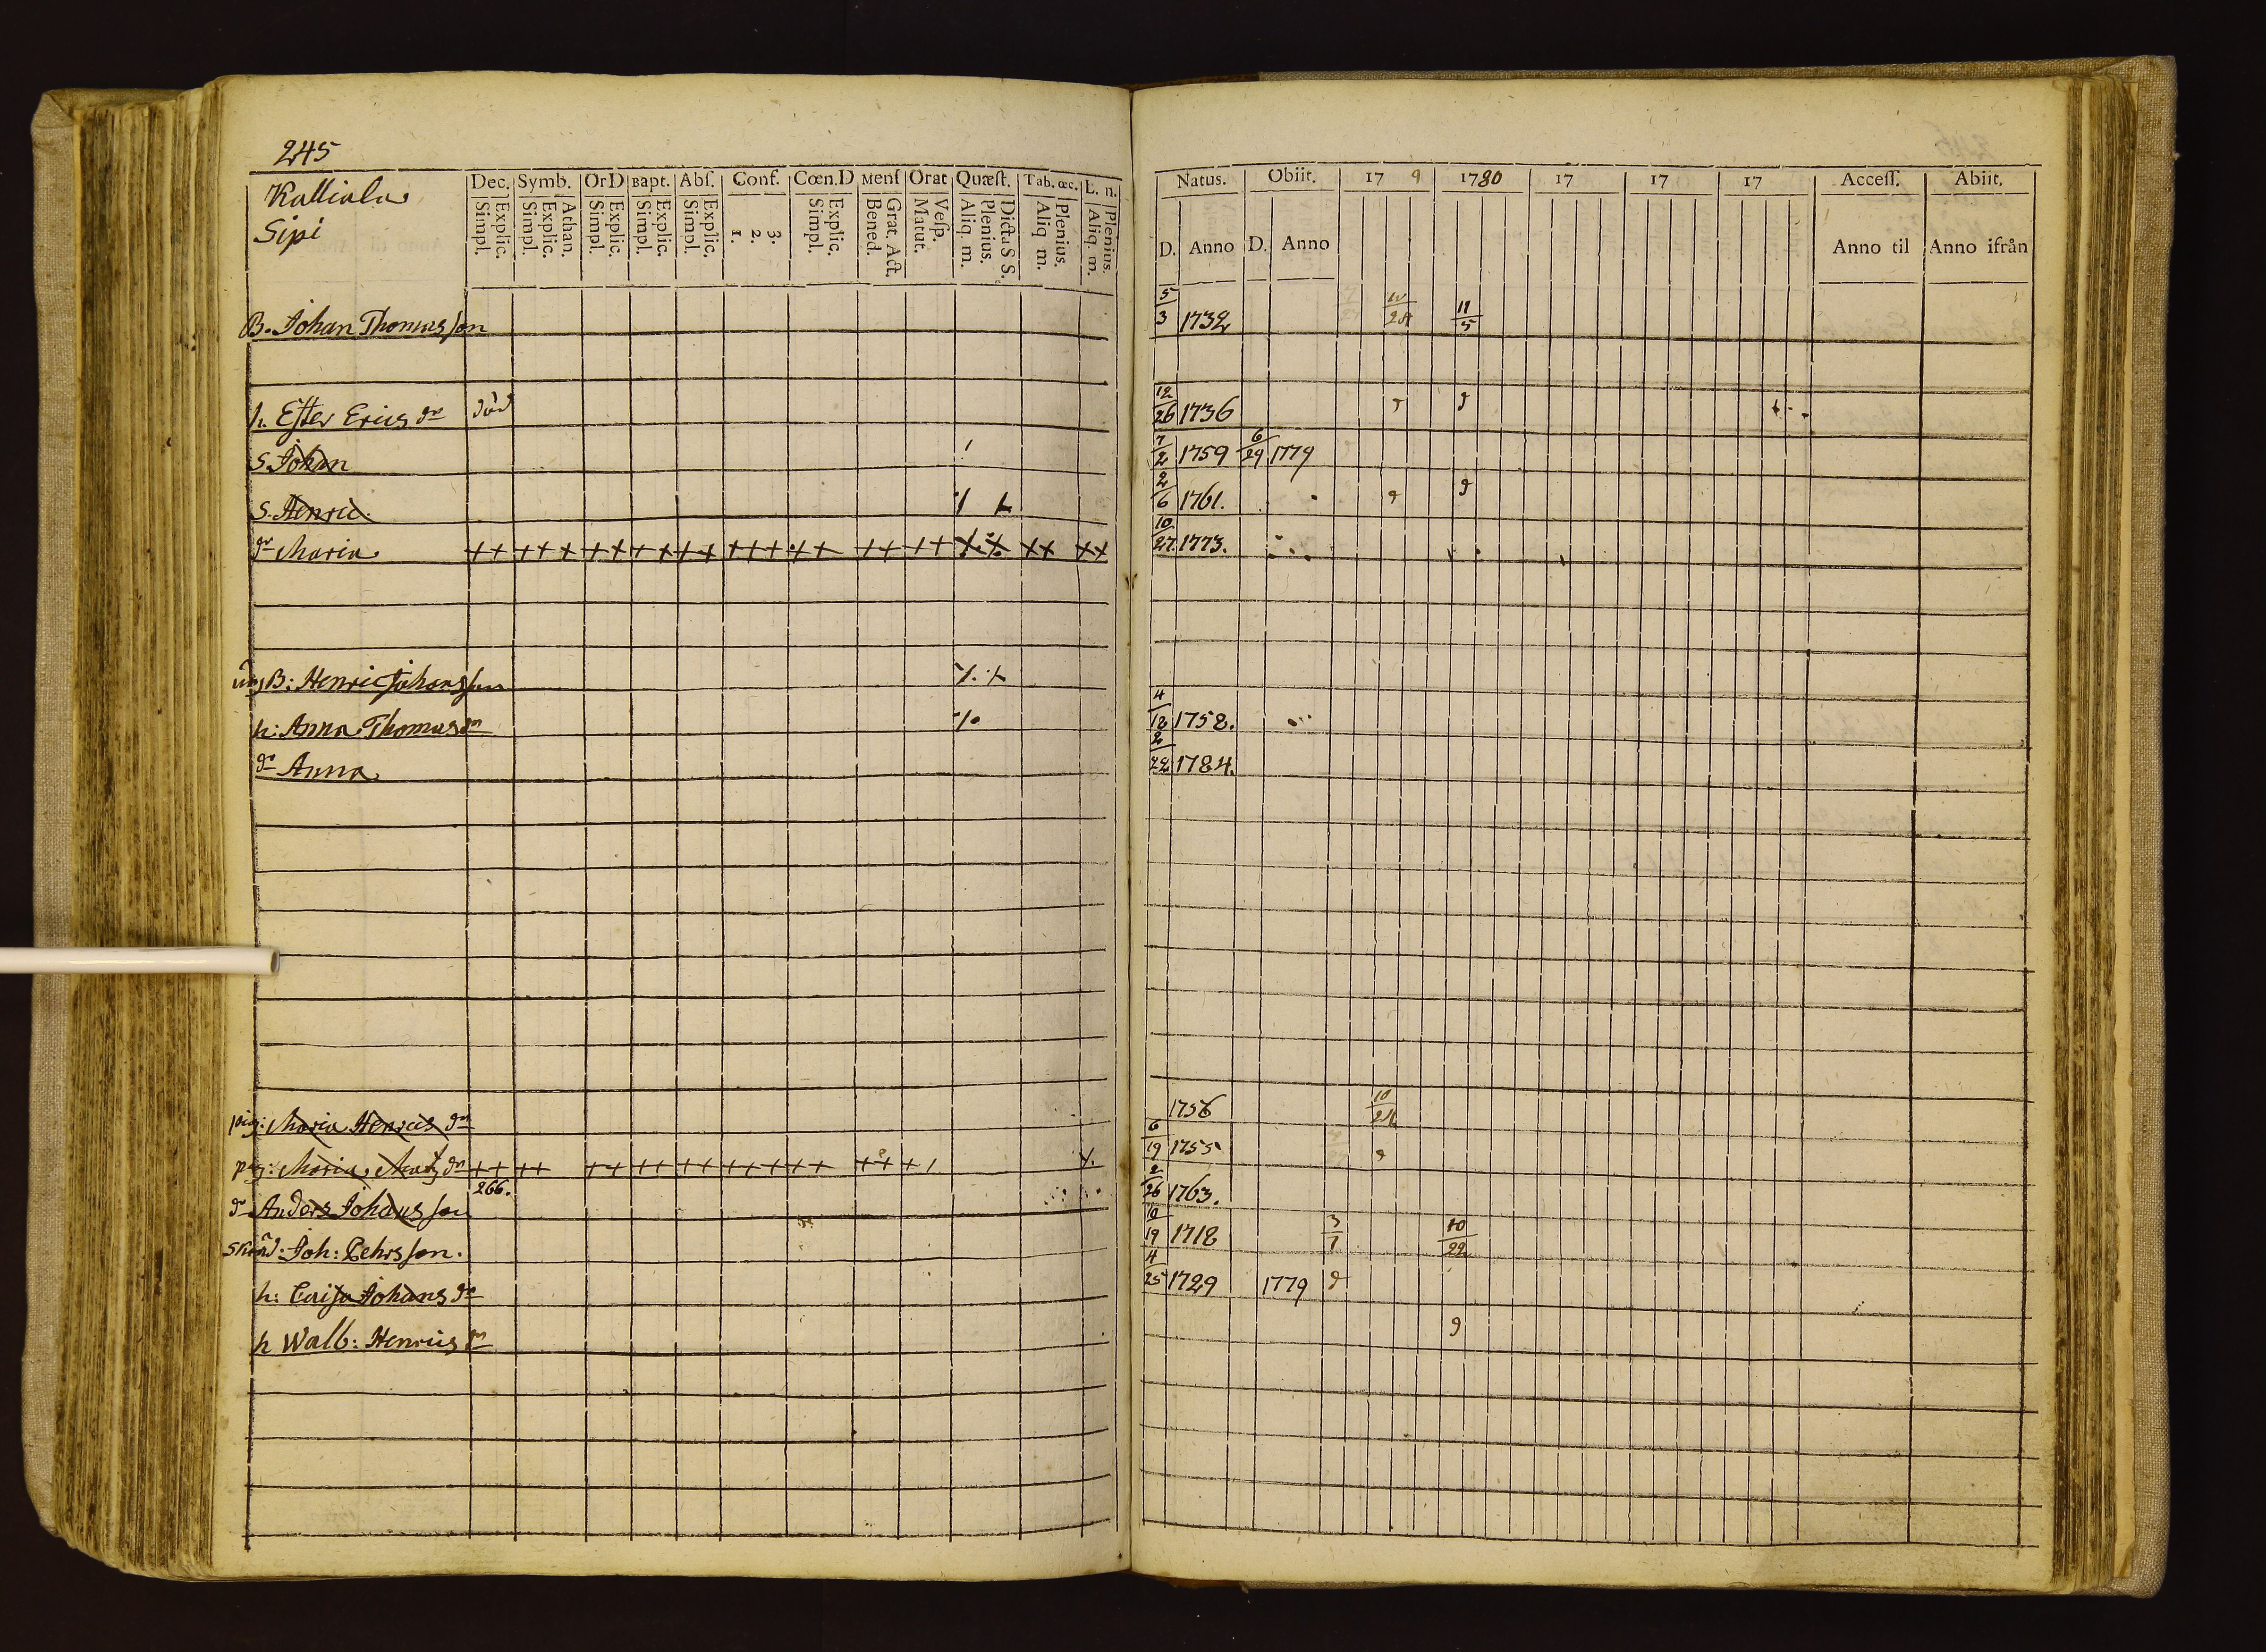 245
Kalliala
Sipi
Dec. Symb. Or D Bapt. Abſ. Conf. Cœn.D Menſ Orat Quæſt. Tab. œc. L. n.
Simpl. Explic. Simpl. Explic. Athan. Simpl. Explic. Simpl. Explic. Simpl. Explic. 1. 2. 3. Simpl. Explic. Bened. Grat. Act. Matut. Veſp. Aliq. m. Plenius. Dicta S S. Aliq. m. Plenius. Aliq. m. Plenius.
Natus. Obiit. 17 9 1780 17 17 17 Acceſſ. Abiit.
D. Anno D. Anno Anno til Anno ifrån
B. Johan Thomasson 5/3 1732 11/5
h. Ester Erics dr död 12/26 1736
S. Johan 7/2 1759 6/29 1779
S. Henric. 2/6 1761.
dr Maria 10/27 1773.
ung B: Henric Johansson
h: Anna Thomas dr 4/18 1758.
dr Anna 2/22 1784.
pig: Maria Henrics dr 1756 10/24
pig: Maria Mats dr 6/19 1755
266.
dr Anders Johansson 2/26 1763.
Skräd: Joh: Pehrsson. 10/19 1718 3/1 10/22
h: Caisa Johans dr 4/25 1729 1779
h Walb: Henrics dr